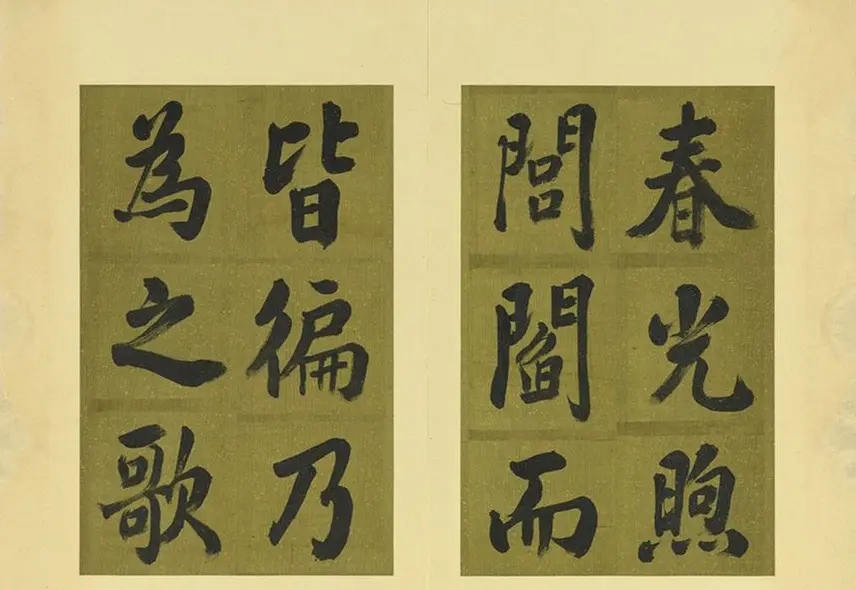 春光煦
閭閻而
皆徧乃
為之歌